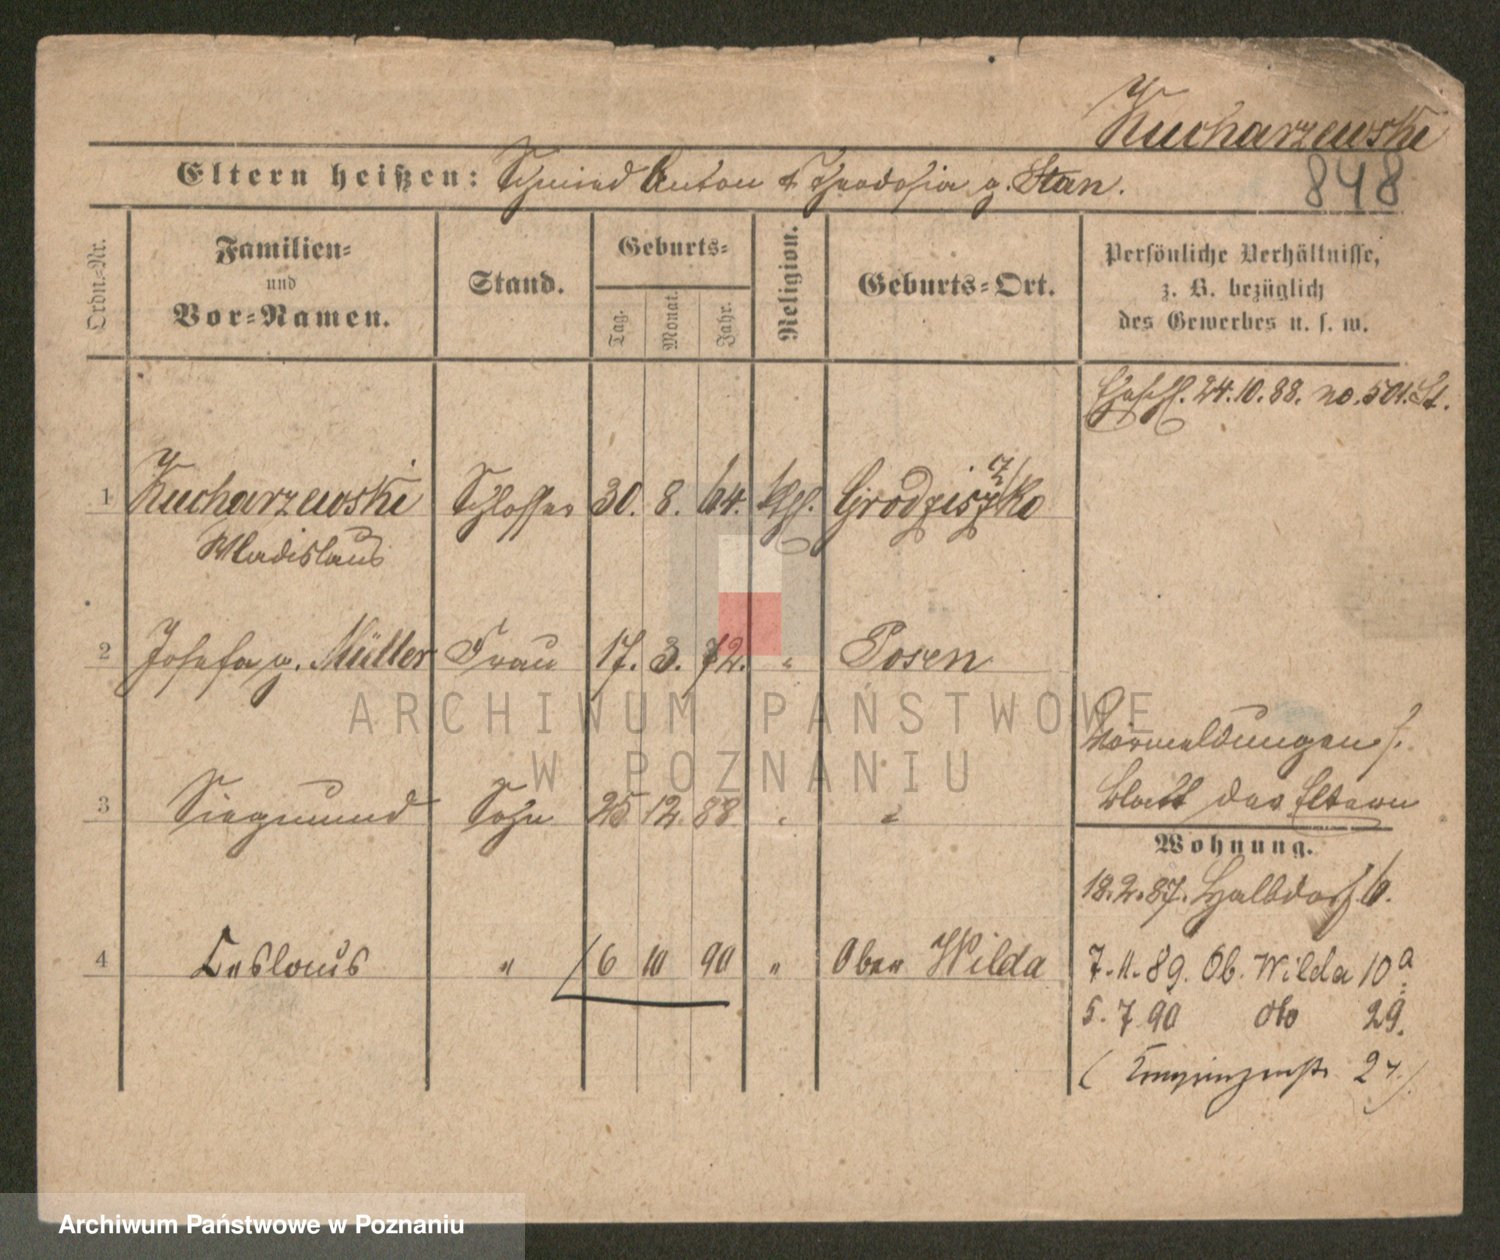 Kucharzewski
848
Eltern heißen: Schmied Anton & Theodosia g. Stan.
Ordn.-Nr.
Familien-
und
Vor-Namen.
Stand.
Geburts-
Tag.
Monat.
Jahr.
Religion.
Geburts-Ort.
Persönliche Verhältnisse,
z. B. bezüglich
des Gewerbes u. s. w.
Eheschl. 24.10.88. no. 501. St.
1 Kucharzewski Schlosser 30. 8. 64. kth. Grodziszko
Wladislaus
2 Josefa g. Müller Frau 17. 3. 72. " Posen
Vormeldungen s.
Blatt der Eltern
3 Siegmund Sohn 25 12. 88 " "
Wohnung.
18.2.87. Halbdorf. 6.
4 Ceslaus " 16 10 90 " Ober Wilda
7.11.89. Ob. Wilda 10a
5.7.90 dto 29.
( 27.)
ARCHIWUM PAŃSTWOWE
W POZNANIU
Archiwum Państwowe w Poznaniu